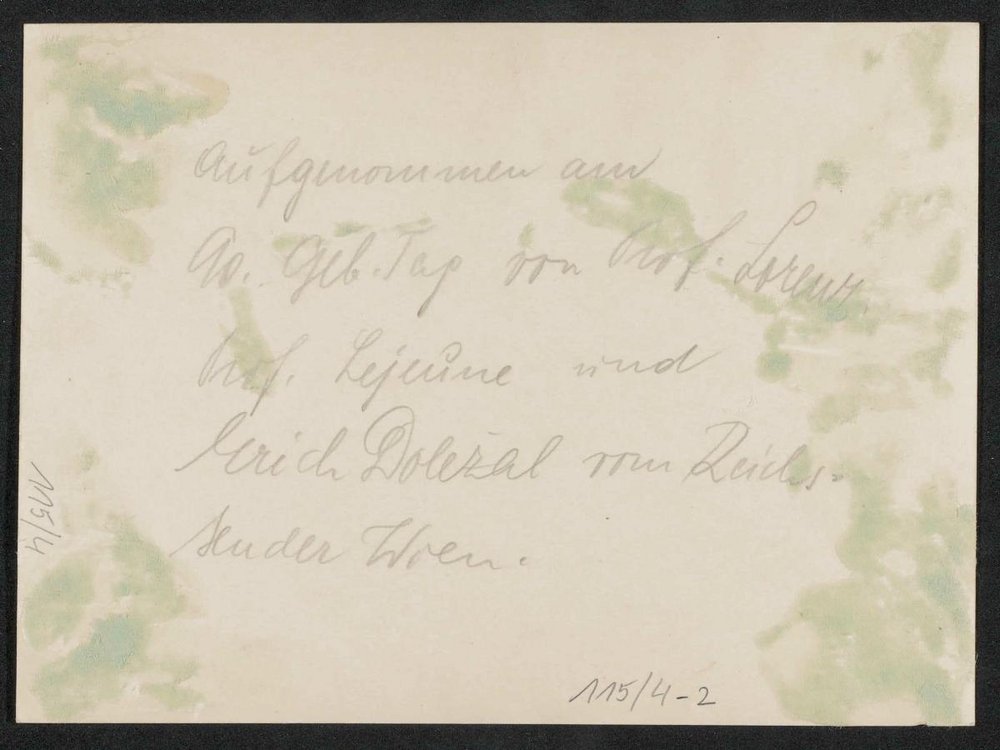 Aufgenommen am
90. Geb. Tag von Prof. Lorenz,
Prof. Lejeune und
Erich Doležal vom Reichs-
sender Wien.
115/4
115/4-2